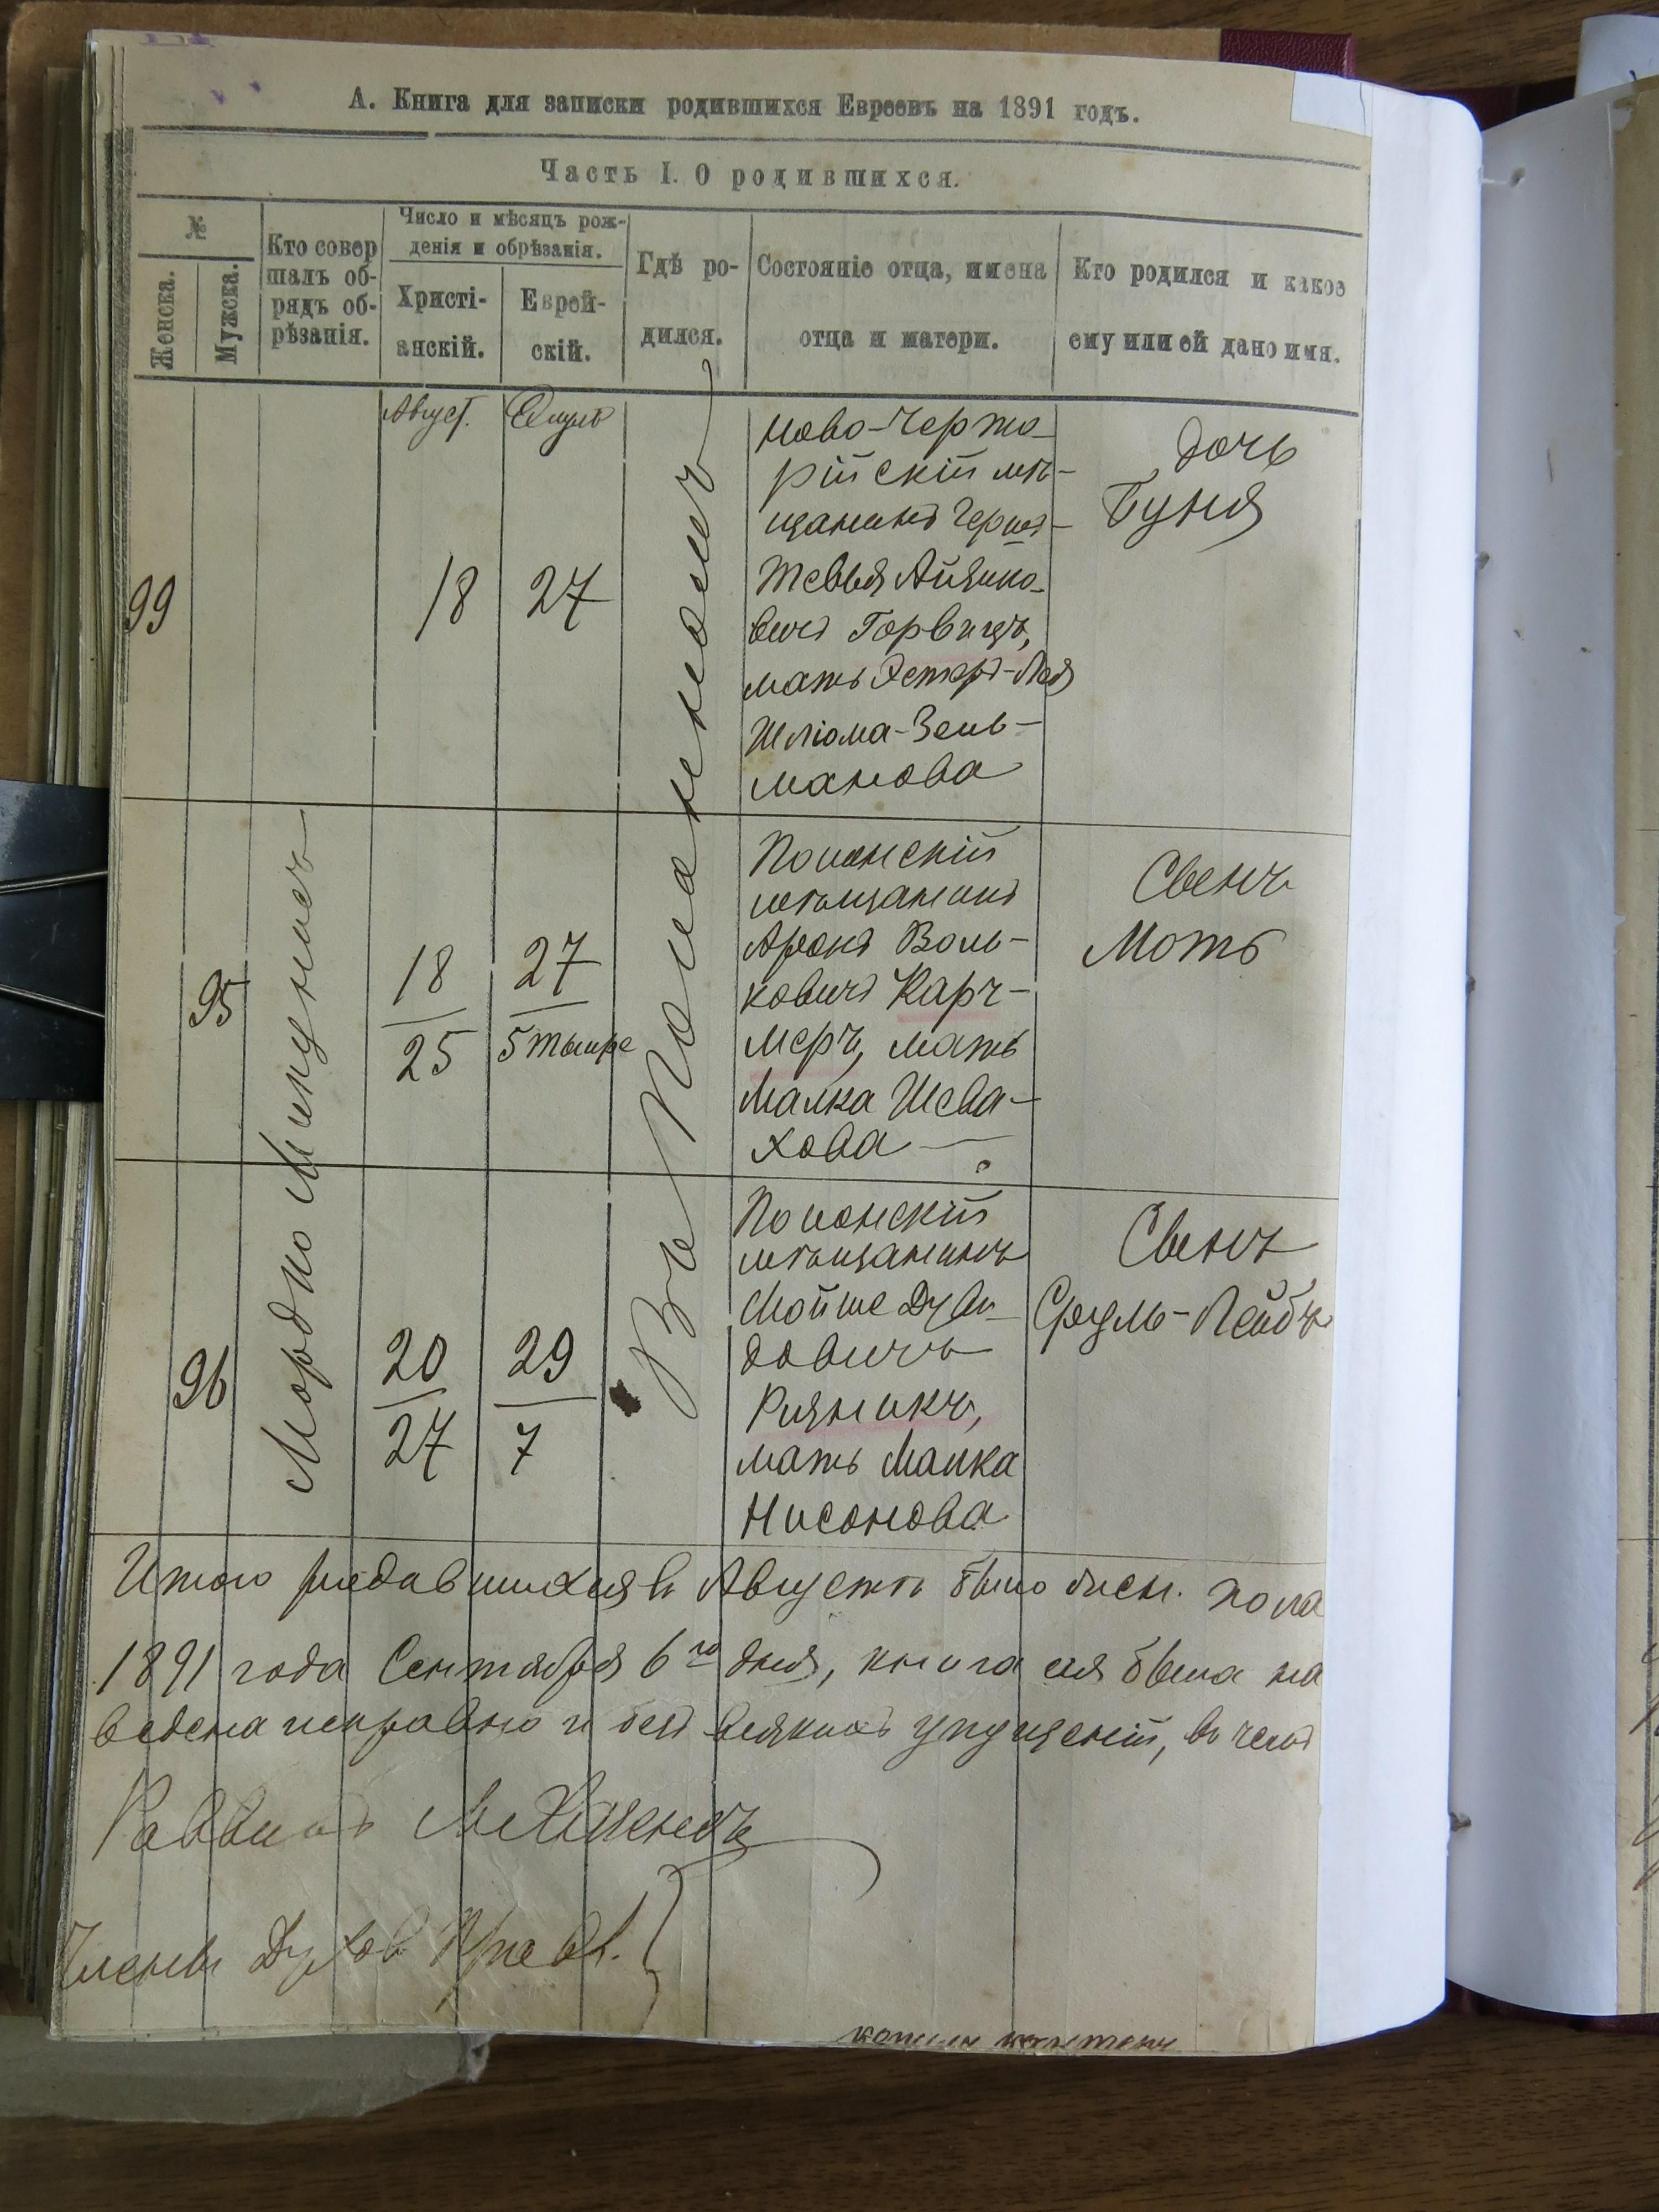 А. Книга для записки родившихся Евреевъ на 1891 годъ.
Часть I. О родившихся.
№
Женска.
Мужска.
Кто совер
шалъ об-
рядъ об-
рѣзанія.
Число и мѣсяцъ рож-
денія и обрѣзанія.
Христі-
анскій.
Еврей-
скій.
Гдѣ ро-
дился.
Состояніе отца, имена
отца и матери.
Кто родился и какое
ему или ей дано имя.
Август.
Елулъ
99
18
27
Ново-Черто-
рійскій мѣ-
щанинъ Герш-
Тевья
вичъ Горвицъ,
мать Эстеръ-Лея
Шліома-Зель-
манова
дочь
Буня
Мордко
въ Полонномъ
95
18
25
27
5 тышре
Полонскій
мѣщанинъ
Аронъ Воль-
ковичъ Карч-
меръ, мать
Малка Шева-
хова
Свенъ
Моть
96
20
27
29
7
Полонскій
мѣщанинъ
Мойше Дуви-
довичъ
Ризникъ,
мать Малка
Нисонова
Свенъ
Сруль-Лейбъ
Итого родившихся въ Августѣ было женск. пола
1891 года Сентября 6го дня, книга сія была на
ведена исправно и безъ всякихъ упущеній, въ чемъ
Раввинъ
Члены Духов. Правл.